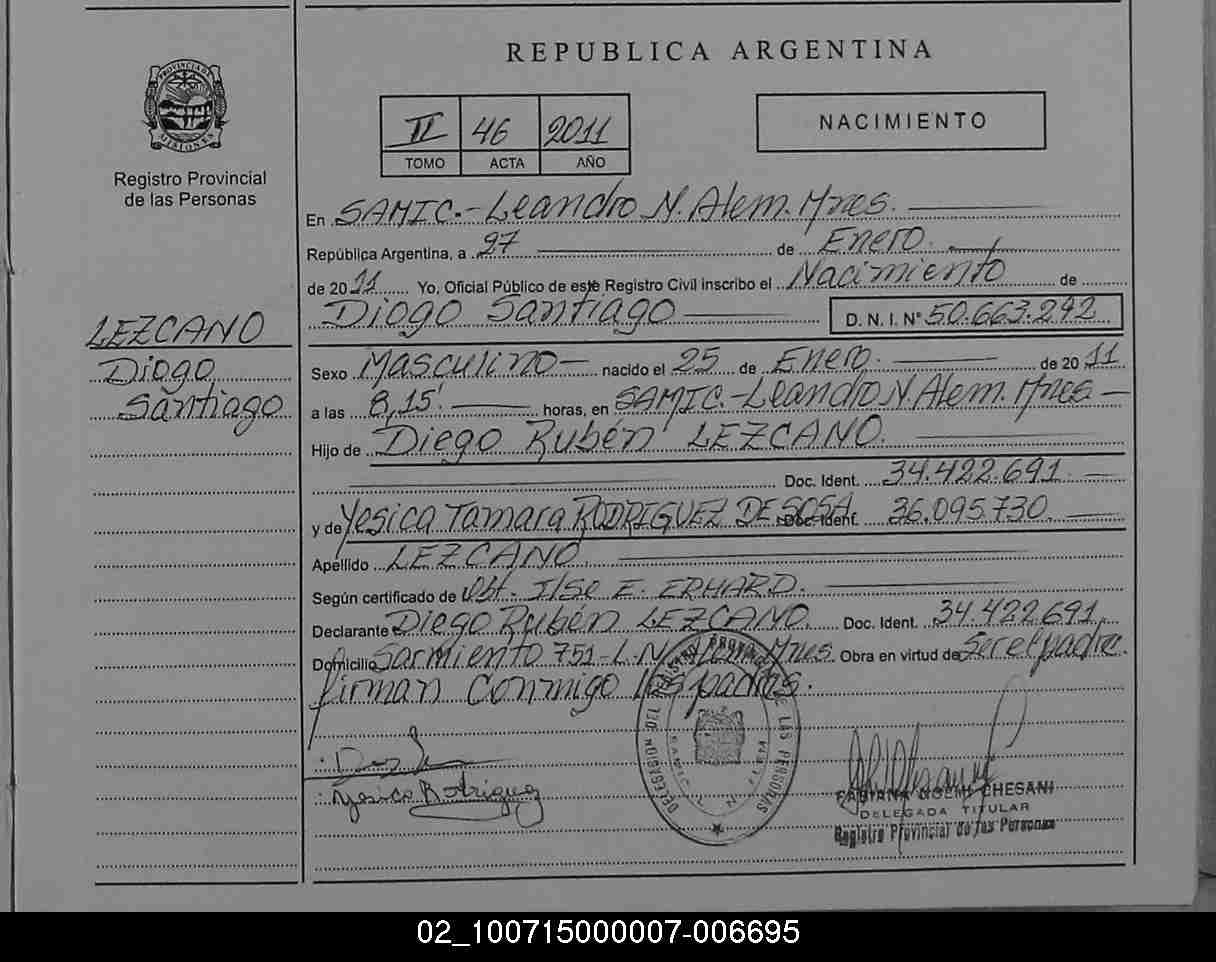 REPUBLICA ARGENTINA
PROVINCIA DE MISIONES
Registro Provincial
de las Personas
II 46 2011
TOMO ACTA AÑO
NACIMIENTO
En SAMIC.-Leandro N. Alem. Mnes.
República Argentina, a 27 de Enero.
de 2011 Yo, Oficial Público de este Registro Civil inscribo el Nacimiento de
Diogo Santiago D. N. I. N° 50.663.292
LEZCANO
Diogo
Santiago
Sexo Masculino nacido el 25 de Enero. de 2011
a las 8,15' horas, en SAMIC.-Leandro N. Alem. Mnes
Hijo de Diego Rubén LEZCANO.
Doc. Ident. 34.422.691
y de Yesica Tamara RODRIGUEZ DE SOSA Doc. Ident. 36.095.730.
Apellido LEZCANO.
Según certificado de Obt. Ilse E. ERHARD.
Declarante Diego Rubén LEZCANO. Doc. Ident. 34.422.691
Domicilio Sarmiento 751-L.N. Alem. Mnes. Obra en virtud de Ser el padre.
firman conmigo los padres.
Yesica Rodriguez
DELEGACION DEL REGISTRO PROV. DE LAS PERSONAS
SAMIC L. N. ALEM
FABIANA NOEMI CHESANI
DELEGADA TITULAR
Registro Provincial de las Personas
02_100715000007-006695